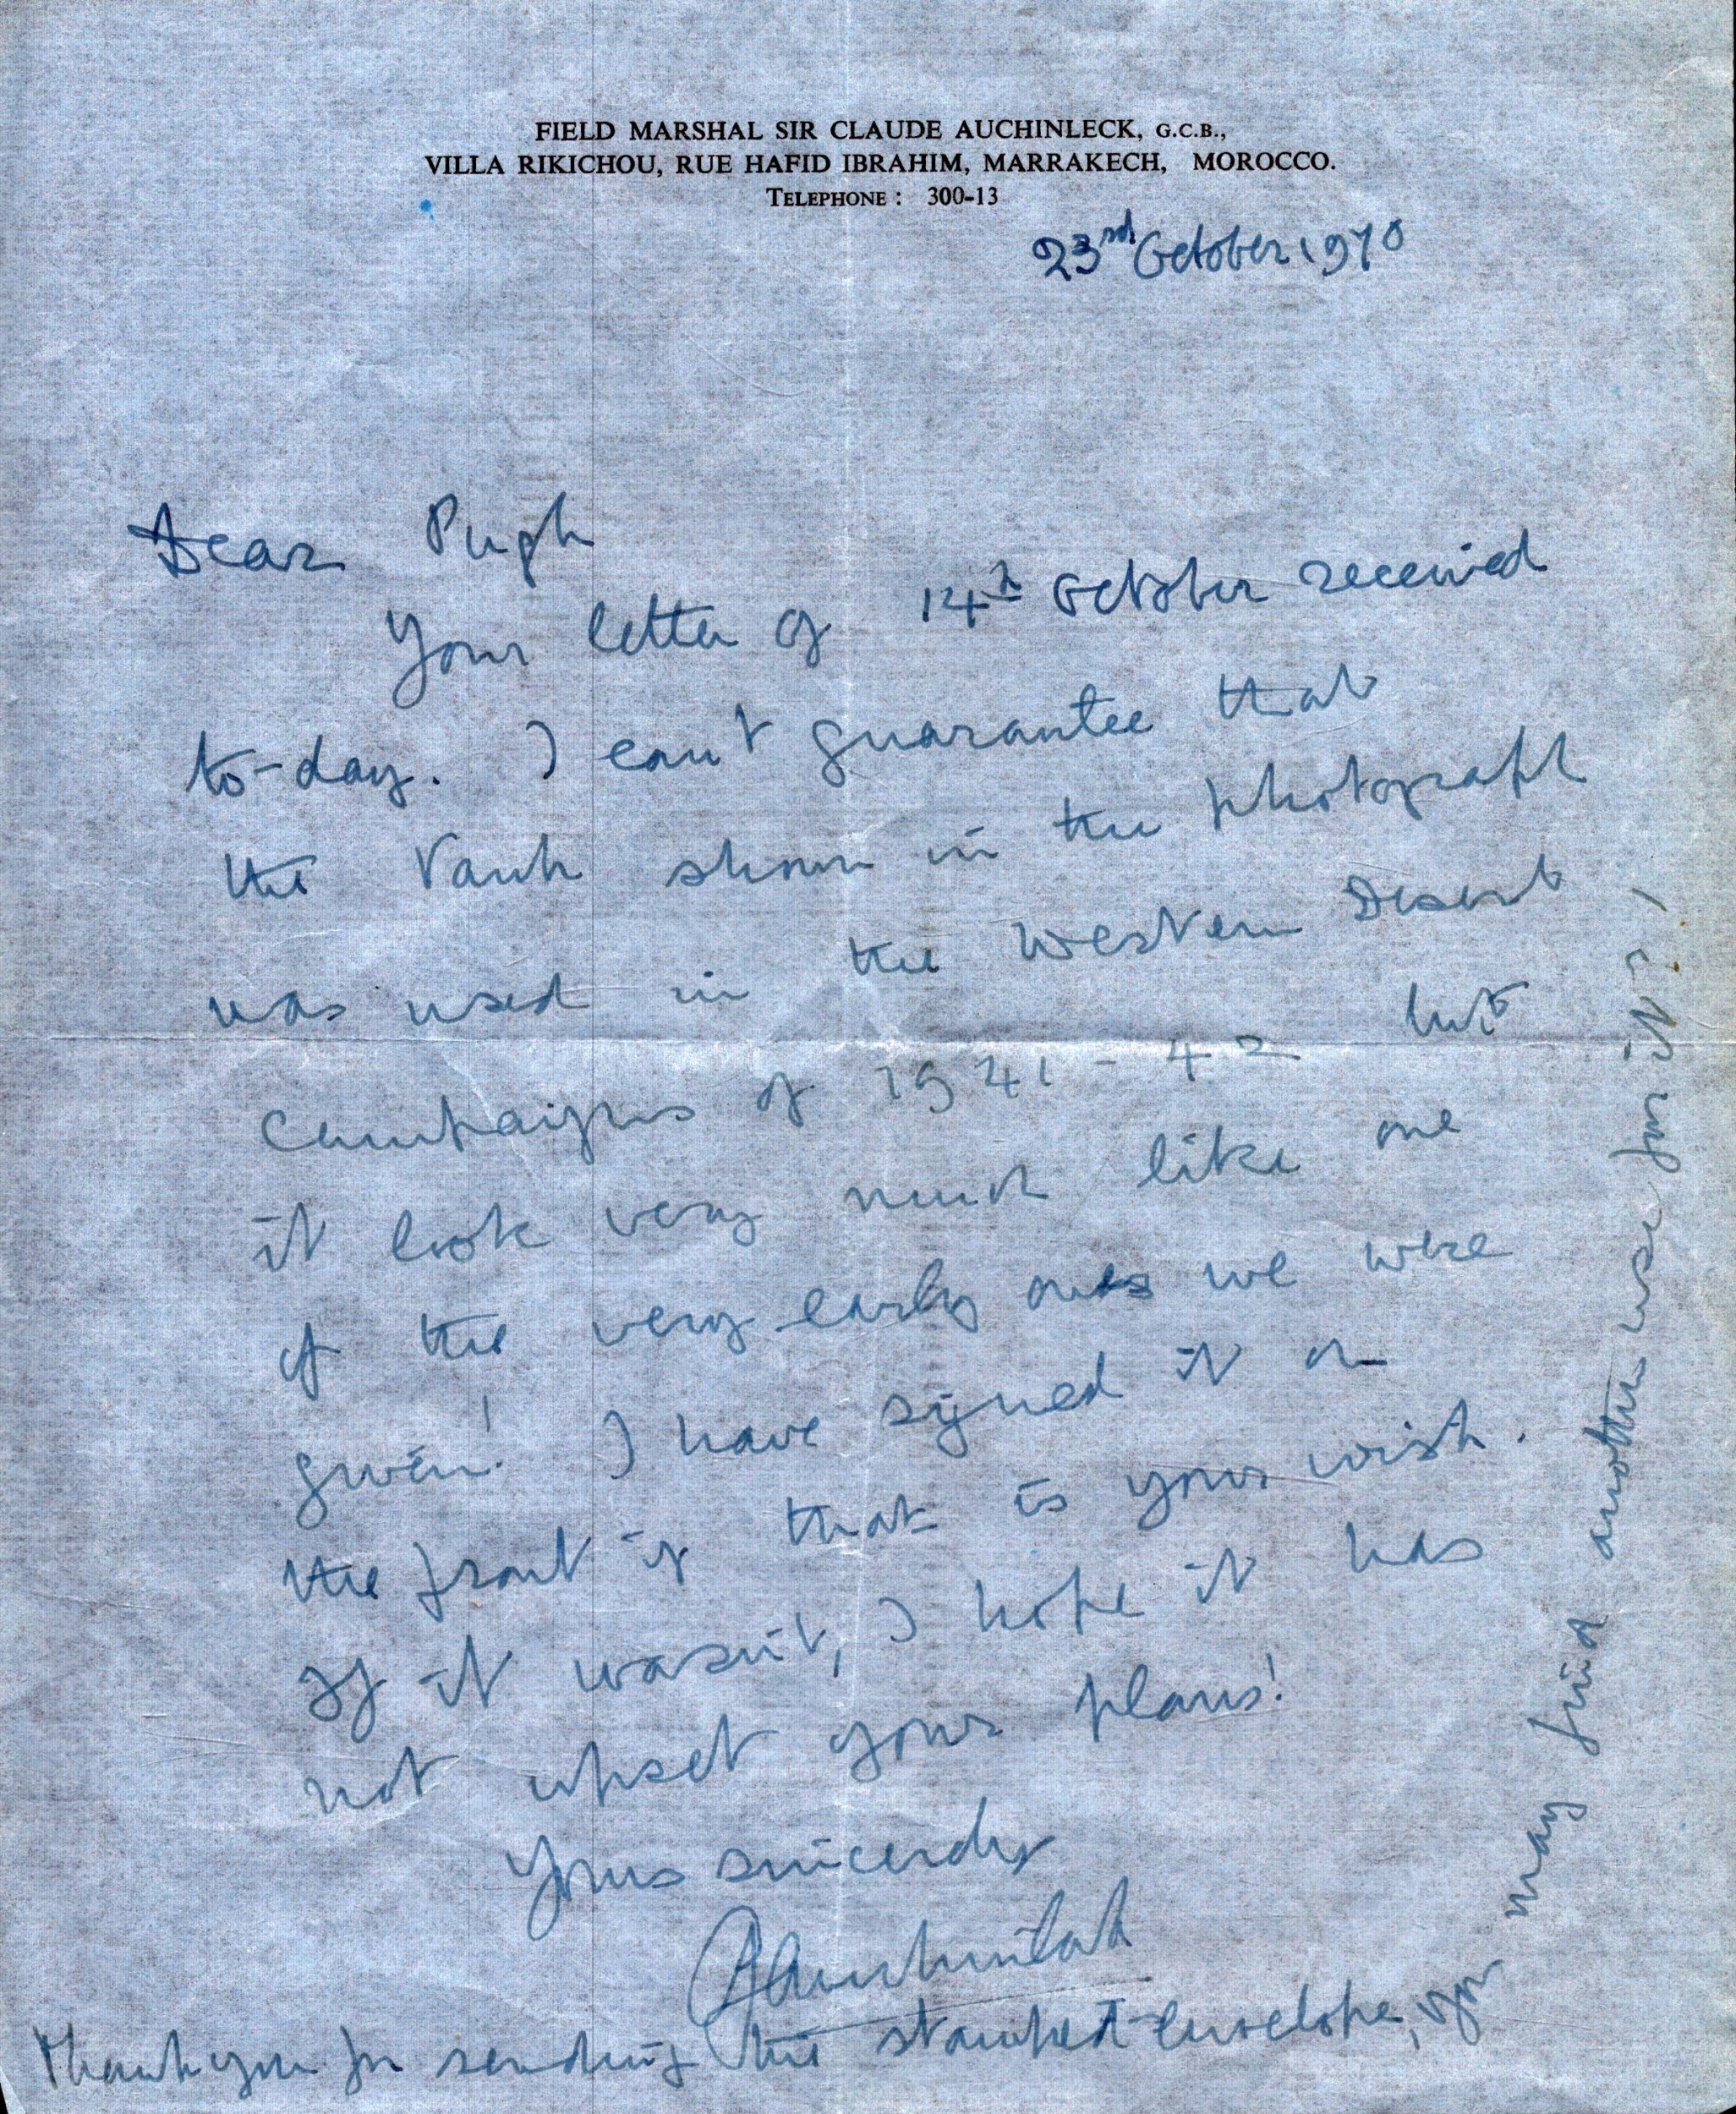 FIELD MARSHAL SIR CLAUDE AUCHINLECK, G.C.B.,
VILLA RIKICHOU, RUE HAFID IBRAHIM, MARRAKECH, MOROCCO.
TELEPHONE : 300-13
23rd October 1970
Dear Pugh
Your letter of 14th October received
to-day. I can't guarantee that
the Tank shown in the photograph
was used in the Western Desert
Campaigns of 1941-42 but
it look very much like one
of the very early ones we were
given! I have signed it on
the front if that is your wish.
If it wasn't, I hope it has
not upset your plans!
Yours sincerely
CAuchinleck
Thank you for sending the stamped envelope, you
may find another use for it?